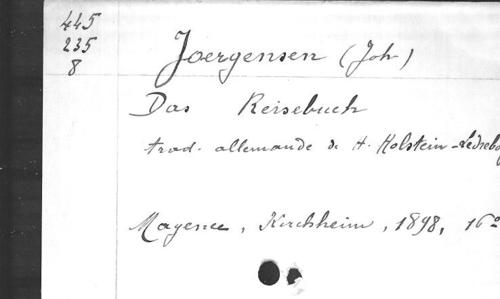 445
235
8
Joergensen (Joh.)
Das Reisebuch
trad. allemande de H. Holstein-Ledrebo
Mayence, Kirchheim, 1898, 16°